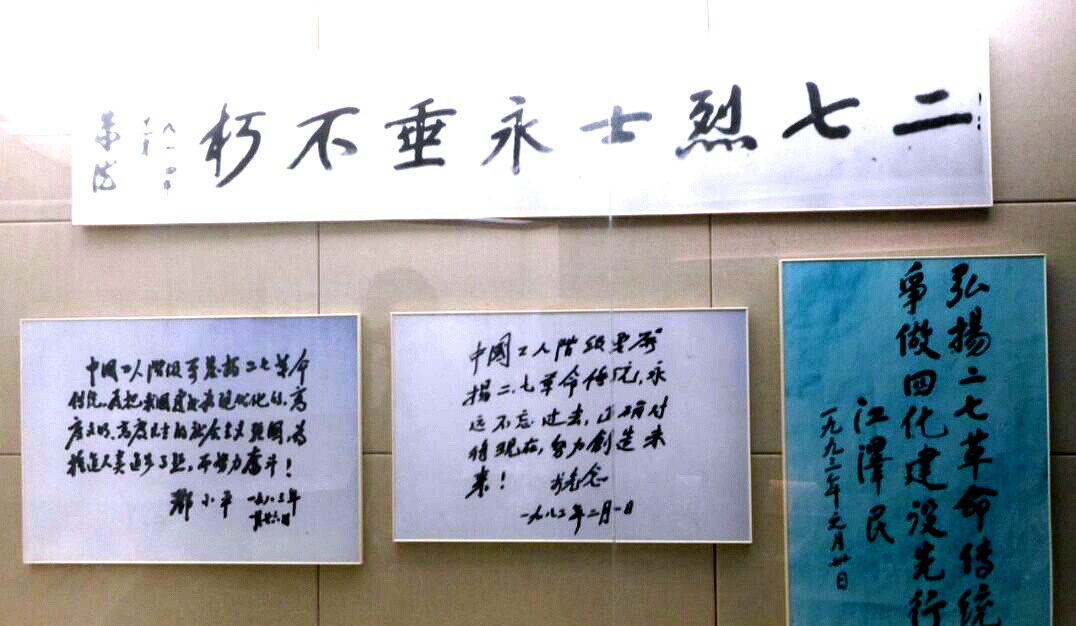 二七烈士永垂不朽
中国工人阶级要发扬二七革命
传统,为把我国建成为现代化的、高
度文明、高度民主的社会主义强国,为
推进人类进步事业,而努力奋斗!
邓小平 一九八三年
一月廿六日
中國工人階级要发
揚二、七革命传统,永
远不忘过去,正确对
待现在,努力創造未
来!
李先念
一九八三年二月一日
弘揚二七革命传统
争做四化建设先行
江澤民
一九九三年元月卅日